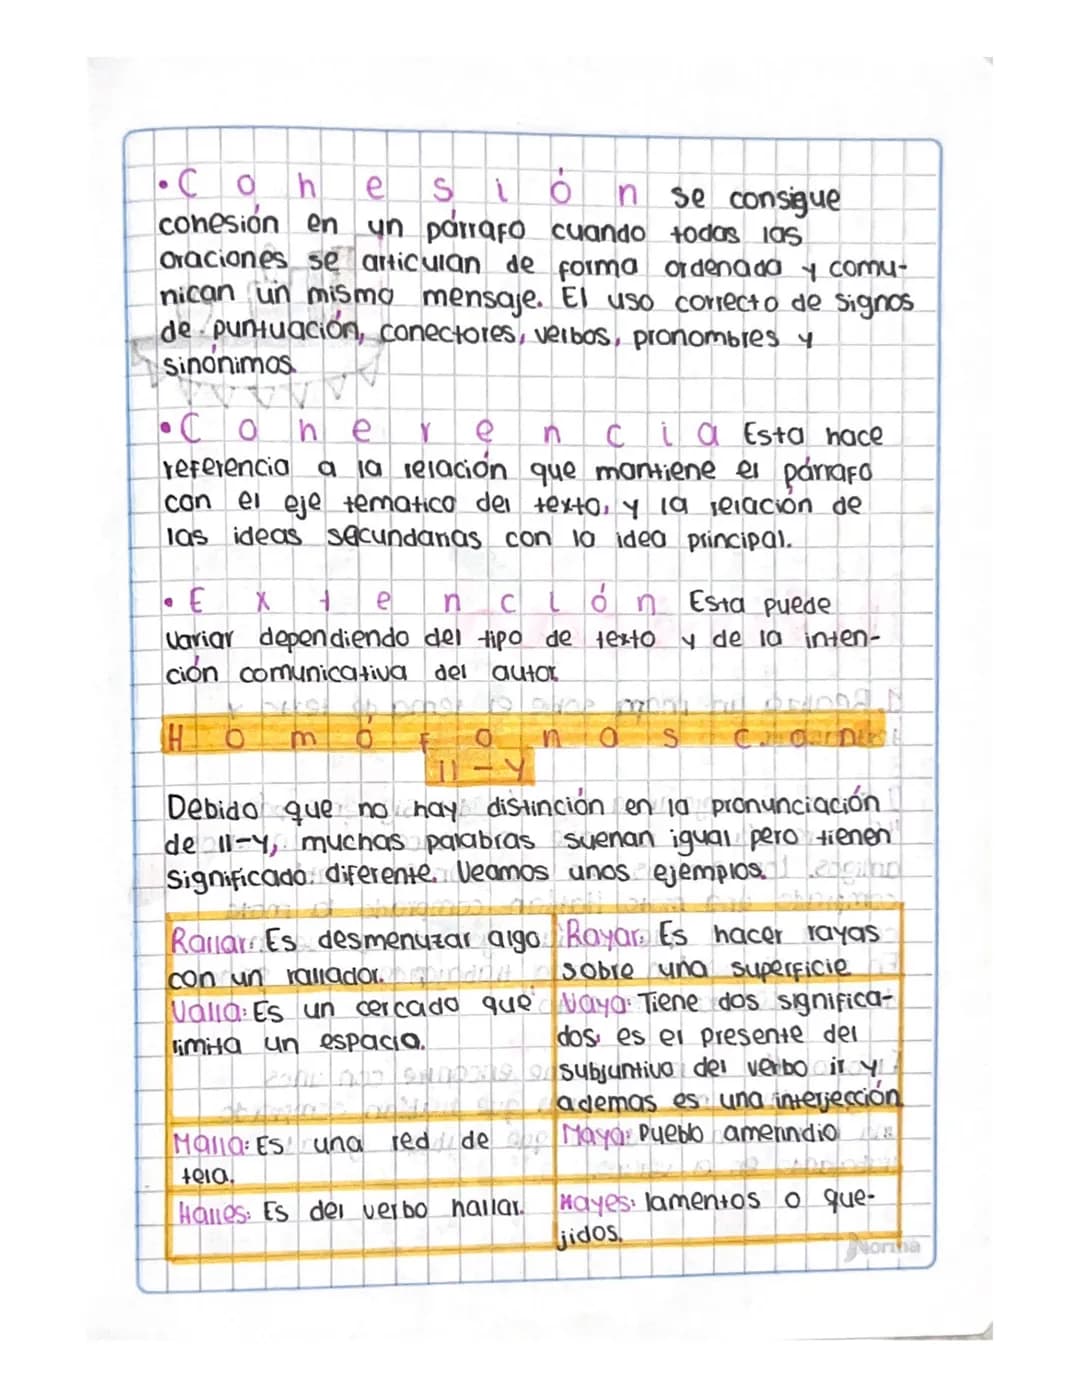 • C o h e s i ó n se consigue
cohesión en un párrafo cuando todas las
oraciones se articulan de forma ordenada y comu-
nican un mismo mensaje. El uso correcto de signos
de puntuación, conectores, verbos, pronombres y
sinónimos.
• C o h e r e n c i a Esta hace
referencia a la relación que mantiene el párrafo
con el eje tematico del texto, y la relación de
las ideas secundarias con la idea principal.
• E x t e n c i ó n Esta puede
variar dependiendo del tipo de texto y de la inten-
ción comunicativa del autor
H o m ó f o n o s c o n
ll - y
Debido que no hay distinción en la pronunciación
de ll-y, muchas palabras suenan igual pero tienen
significado diferente. Veamos unos ejemplos.
Rallar: Es desmenuzar algo
con un rallador.
Rayar: Es hacer rayas
sobre una superficie
Valla: Es un cercado que
limita un espacio.
Vaya: Tiene dos significa-
dos, es el presente del
subjuntivo del verbo ir y
ademas es una interjección
Malla: Es una red de
tela.
Maya: Pueblo amerindio
Halles: Es del verbo hallar.
Hayes: lamentos o que-
jidos.
Norma